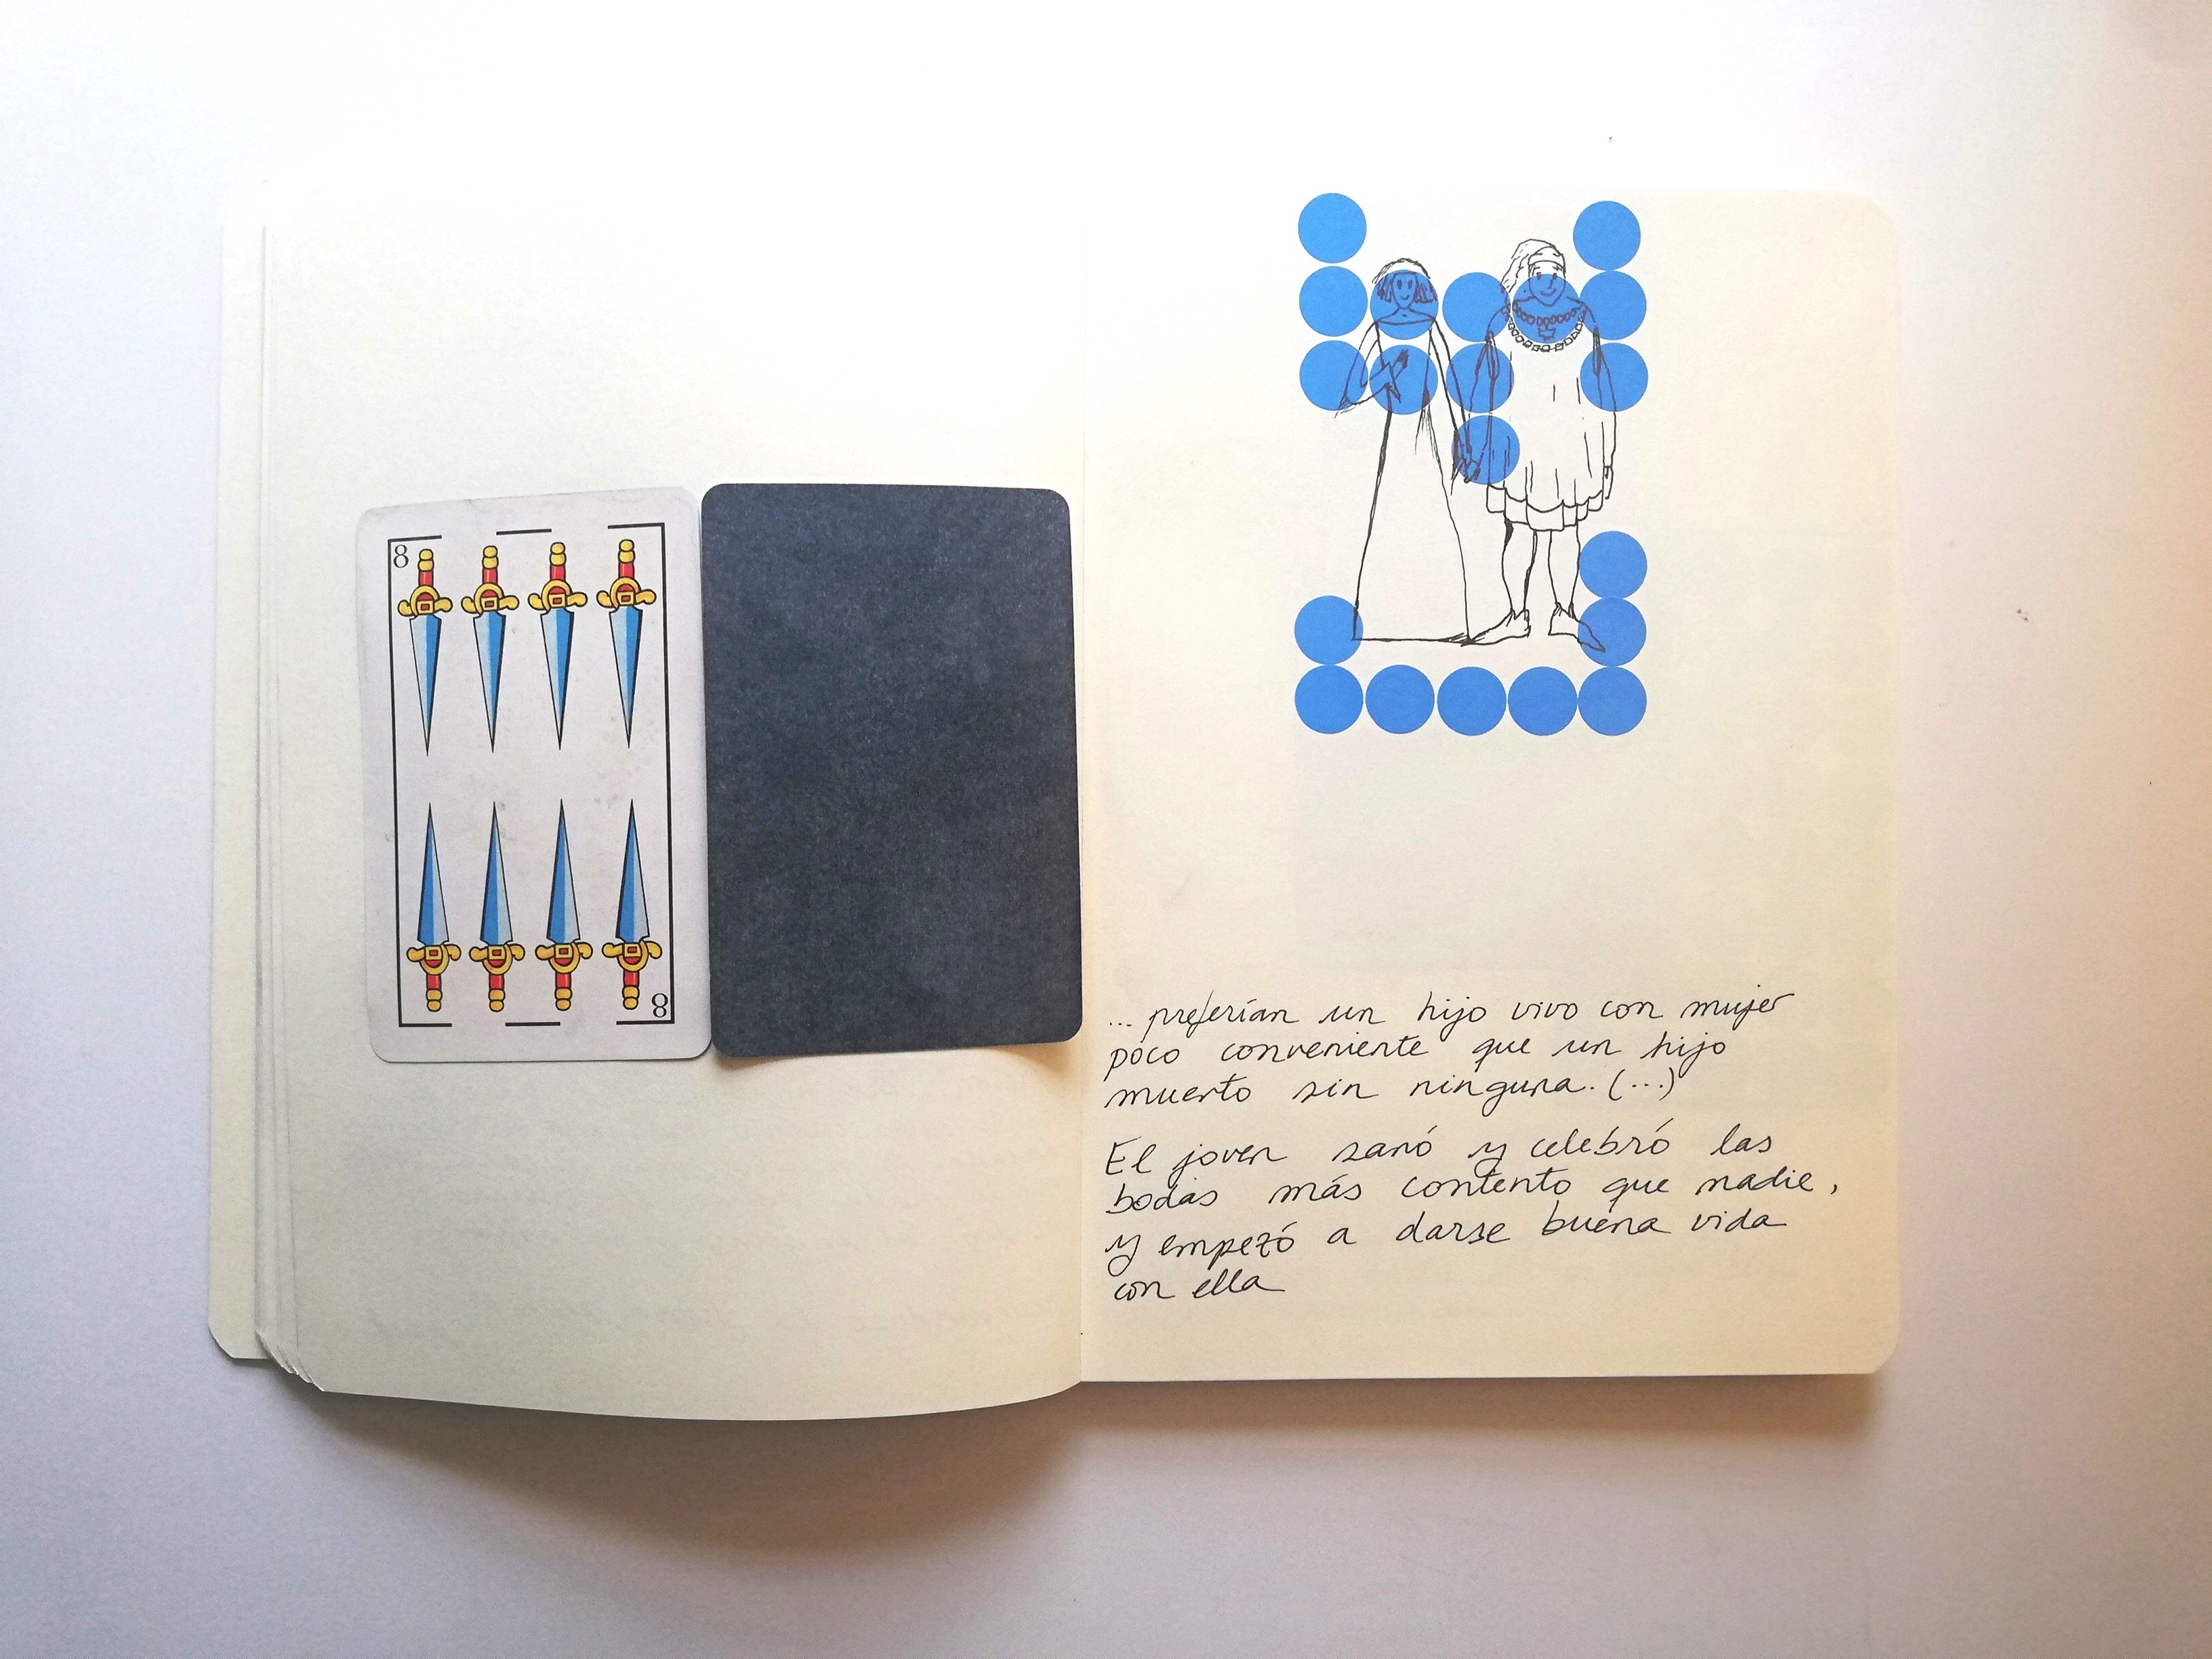 8
8
... preferían un hijo vivo con mujer
poco conveniente que un hijo
muerto sin ninguna. (...)
El joven sanó y celebró las
bodas más contento que nadie,
y empezó a darse buena vida
con ella